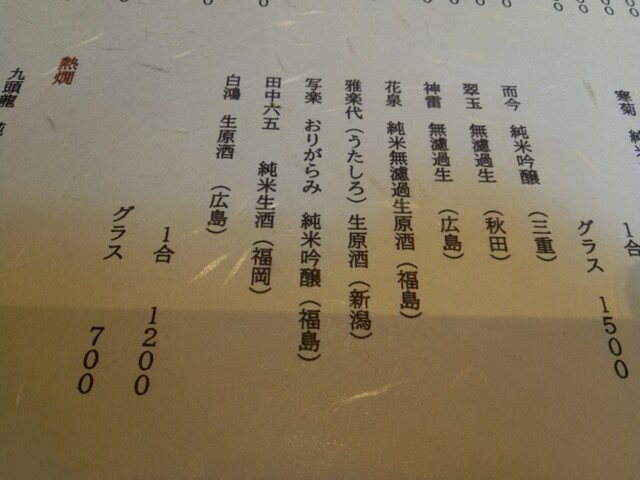 寒菊 純米
1合
グラス 1500
而今 純米吟醸 (三重)
翠玉 無濾過生 (秋田)
神雷 無濾過生 (広島)
花泉 純米無濾過生原酒 (福島)
雅楽代 (うたしろ) 生原酒 (新潟)
写楽 おりがらみ 純米吟醸 (福島)
田中六五 純米生酒 (福岡)
白鴻 生原酒 (広島)
1合 1200
グラス 700
熱燗
九頭龍 純